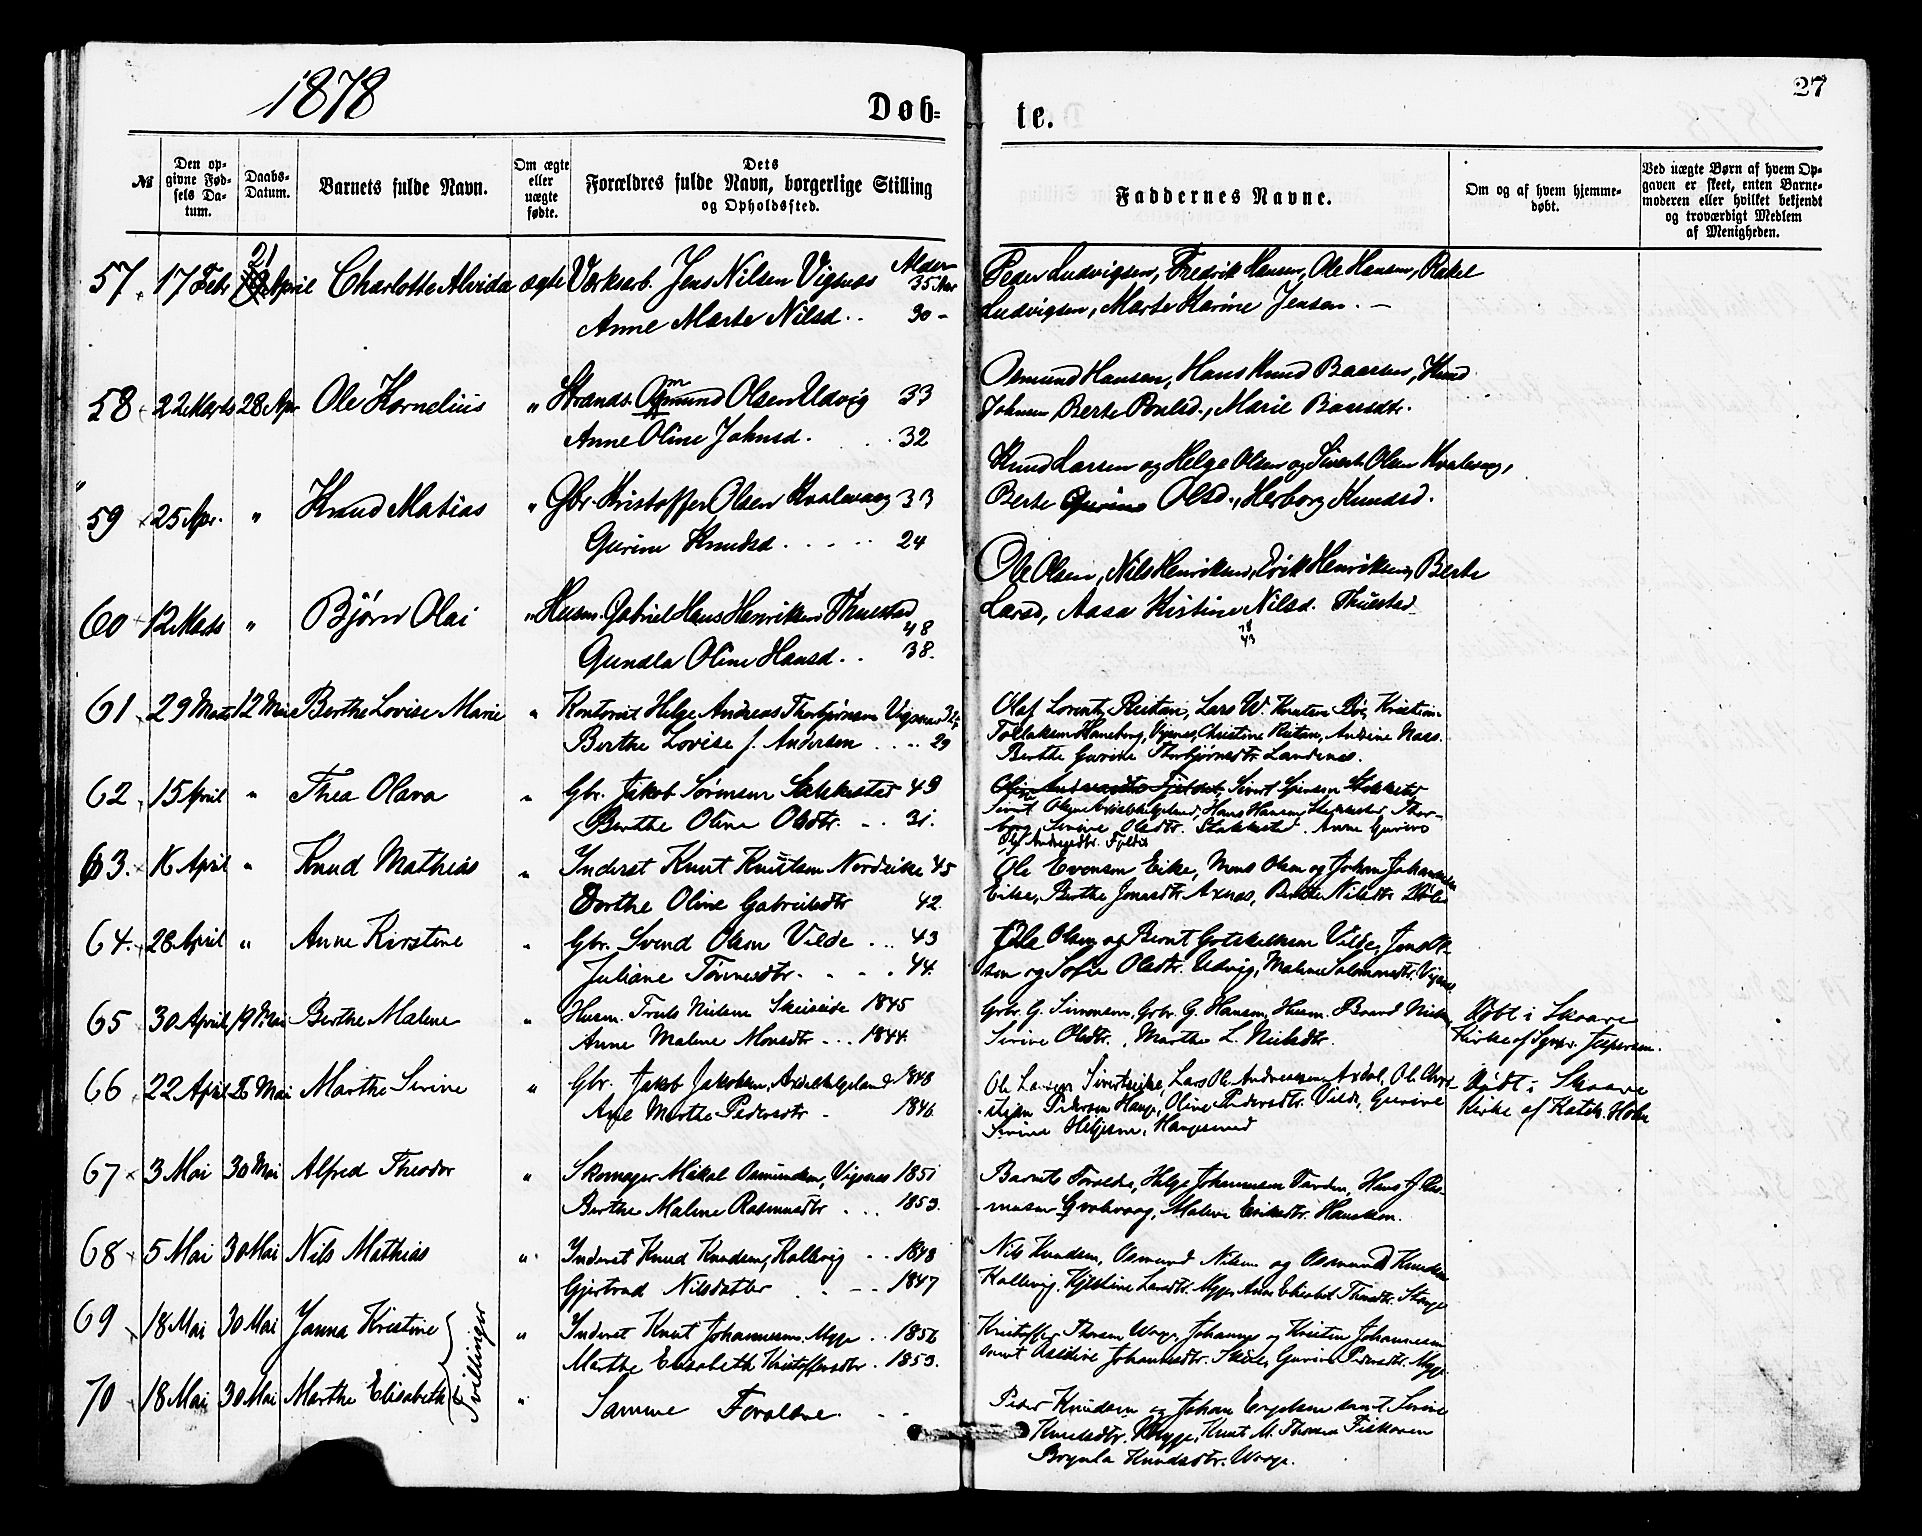 1878
Døb-
te.
27
№
Den op-
givne Fød-
sels Da-
tum.
Daabs-
Datum.
Barnets fulde Navn.
Om ægte
eller
uægte
fødte.
Dets
Forældres fulde Navn, borgerlige Stilling
og Opholdssted.
Faddernes Navne.
Om og af hvem hjemme-
døbt.
Ved uægte Børn af hvem Op-
gaven er skeet, enten Barne-
moderen eller hvilket bekjendt
og troværdigt Medlem
af Menigheden.
57 17 Febr 21 April Charlotte Alvida ægte Værksarb. Jens Nilsen Vigsnæs Alder 35 Aar
Anne Marte Nilsd. 30 -
Peder Ludvigsen, Fredrik Hansen, Ole Hansen, Rakel
Ludvigsen, Marte Karine Jensen. -
58 22 Marts 28 Apr Ole Kornelius " Strands. Osmund Olsen Udvig 33
Anne Oline Johnsd. 32
Osmund Hansen, Hans Knud Baarsen, Knud
Johnsen, Berte Poulsd., Marie Baarsdtr.
59 25 Apr. " Knud Matias " Gbr. Kristoffer Olsen Kvalevaag 33
Gurine Knudsd. 24
Knud Larsen og Helge Olsen og Sivert Olsen Kvalevaag,
Berte Gurine Olsd., Herborg Knudsd.
60 12 Marts " Bjørn Olai " Husm. Gabriel Hans Henriksen Thuestad 48
Gundla Oline Hansd. 38.
Ole Olsen, Nils Henriksen, Erik Henriksen, Berte
Larsd, Aasa Kristine Nilsd. Thuestad
61 29 Marts 12 Mai Berthe Lovise Marie " Kontorist Helge Andreas Thorbjørnsen Vigsnæs
Berthe Lovise f. Andersen 29
Olaf Lorentz Reitan, Lars W. Knutsen Bø, Kristian
Tollaksen Haneborg, Vigsnes, Christine Reitan, Andrine Naas.
Berthe Gurine Thorbjørnsdtr Landenes.
62 15 April " Thea Olava " Gbr. Jakob Sørensen Stakkestad 49
Berthe Oline Olsdtr. 31.
Sivert Olsen Axdalhelgeland, Hans Hansen Stakkestad, Thor-
borg Serine Olsdtr. Stakkestad, Anne Gurine
63. 16 April " Knud Mathias " Inderst Knut Knutsen Nordeike 45
Dorthe Oline Gabrielsdtr 42.
Ole Evensen Eike, Mons Olsen og Johan Johannesen
Eike, Berthe Jonasdtr Axnes, Berthe Nilsdtr
64. 28 April " Anne Kirstine " Gbr. Svend Olsen Vilde 43
Juliane Tønnesdtr. 44.
Ole Olsen og Bernt Gotskalksen Vilde,
sen og Sofie Olsdtr. Udvig, Malene Salomonsdtr. Vigsnes
65 30 April 19 Mai Berthe Malene " Husm. Truls Nielsen Skeiseide 1845
Anne Malene Monsdtr 1844.
Grbr. G. Simonsen, Grbr. G. Hansen, Husm. Baard Nielsen
Serine Olsdtr., Marthe L. Nielsdtr.
Døbt i Skaare
Kirke af Sgnpr. Jespersen.
66 22 April 26 Mai Marthe Serine " Gbr. Jakob Jakobsen, Axdalhelgeland 1848
Ane Marthe Pedersdtr 1846.
Ole Larsen Sivertseike, Lars Ol. Andreassen Axdal, Ole Chri-
stian Pedersen Hauge, Oline Pedersdtr. Vilde, Gurine
Serine Hiljesen, Haugesund
Døbt i Skaare
Kirke af Katek. Holm
67 3 Mai 30 Mai Alfred Theodor " Skomager Mikal Osmundsen, Vigsnes 1851
Berthe Malene Rasmusdtr 1853.
Barnets Forældre, Helge Johannesen Førden, Hans J. Ras-
musen Kvalvaag, Malene Eriksdtr. Hausken.
68 5 Mai 30 Mai Nils Mathias " Inderst Knud Knudsen, Kallevig 1848
Gjertrud Nilsdatter 1847
Nils Knudsen, Osmund Nilsen og Osmund Knudsen
Kallevig. Kjerstine Larsdtr. Myge, Anne Elisabet
69 18 Mai 30 Mai Janna Kristine " Inderst Knut Johannesen Myge 1856
Marthe Elisabeth Kristoffersdtr. 1853.
Kristoffer Thorsen Vorge, Johannes og Kristen Johannesen
samt Aseline Johannesdtr. Gurine Pedersdtr. Myge
Tvillinger
70 18 Mai 30 Mai Marthe Elisabeth " Samme Forældre.
Peder Knudsen og Johan samt Serine
Knudsdtr. Myge, Knut M. Thorsen
Brynla Knudsdtr. Vorge.